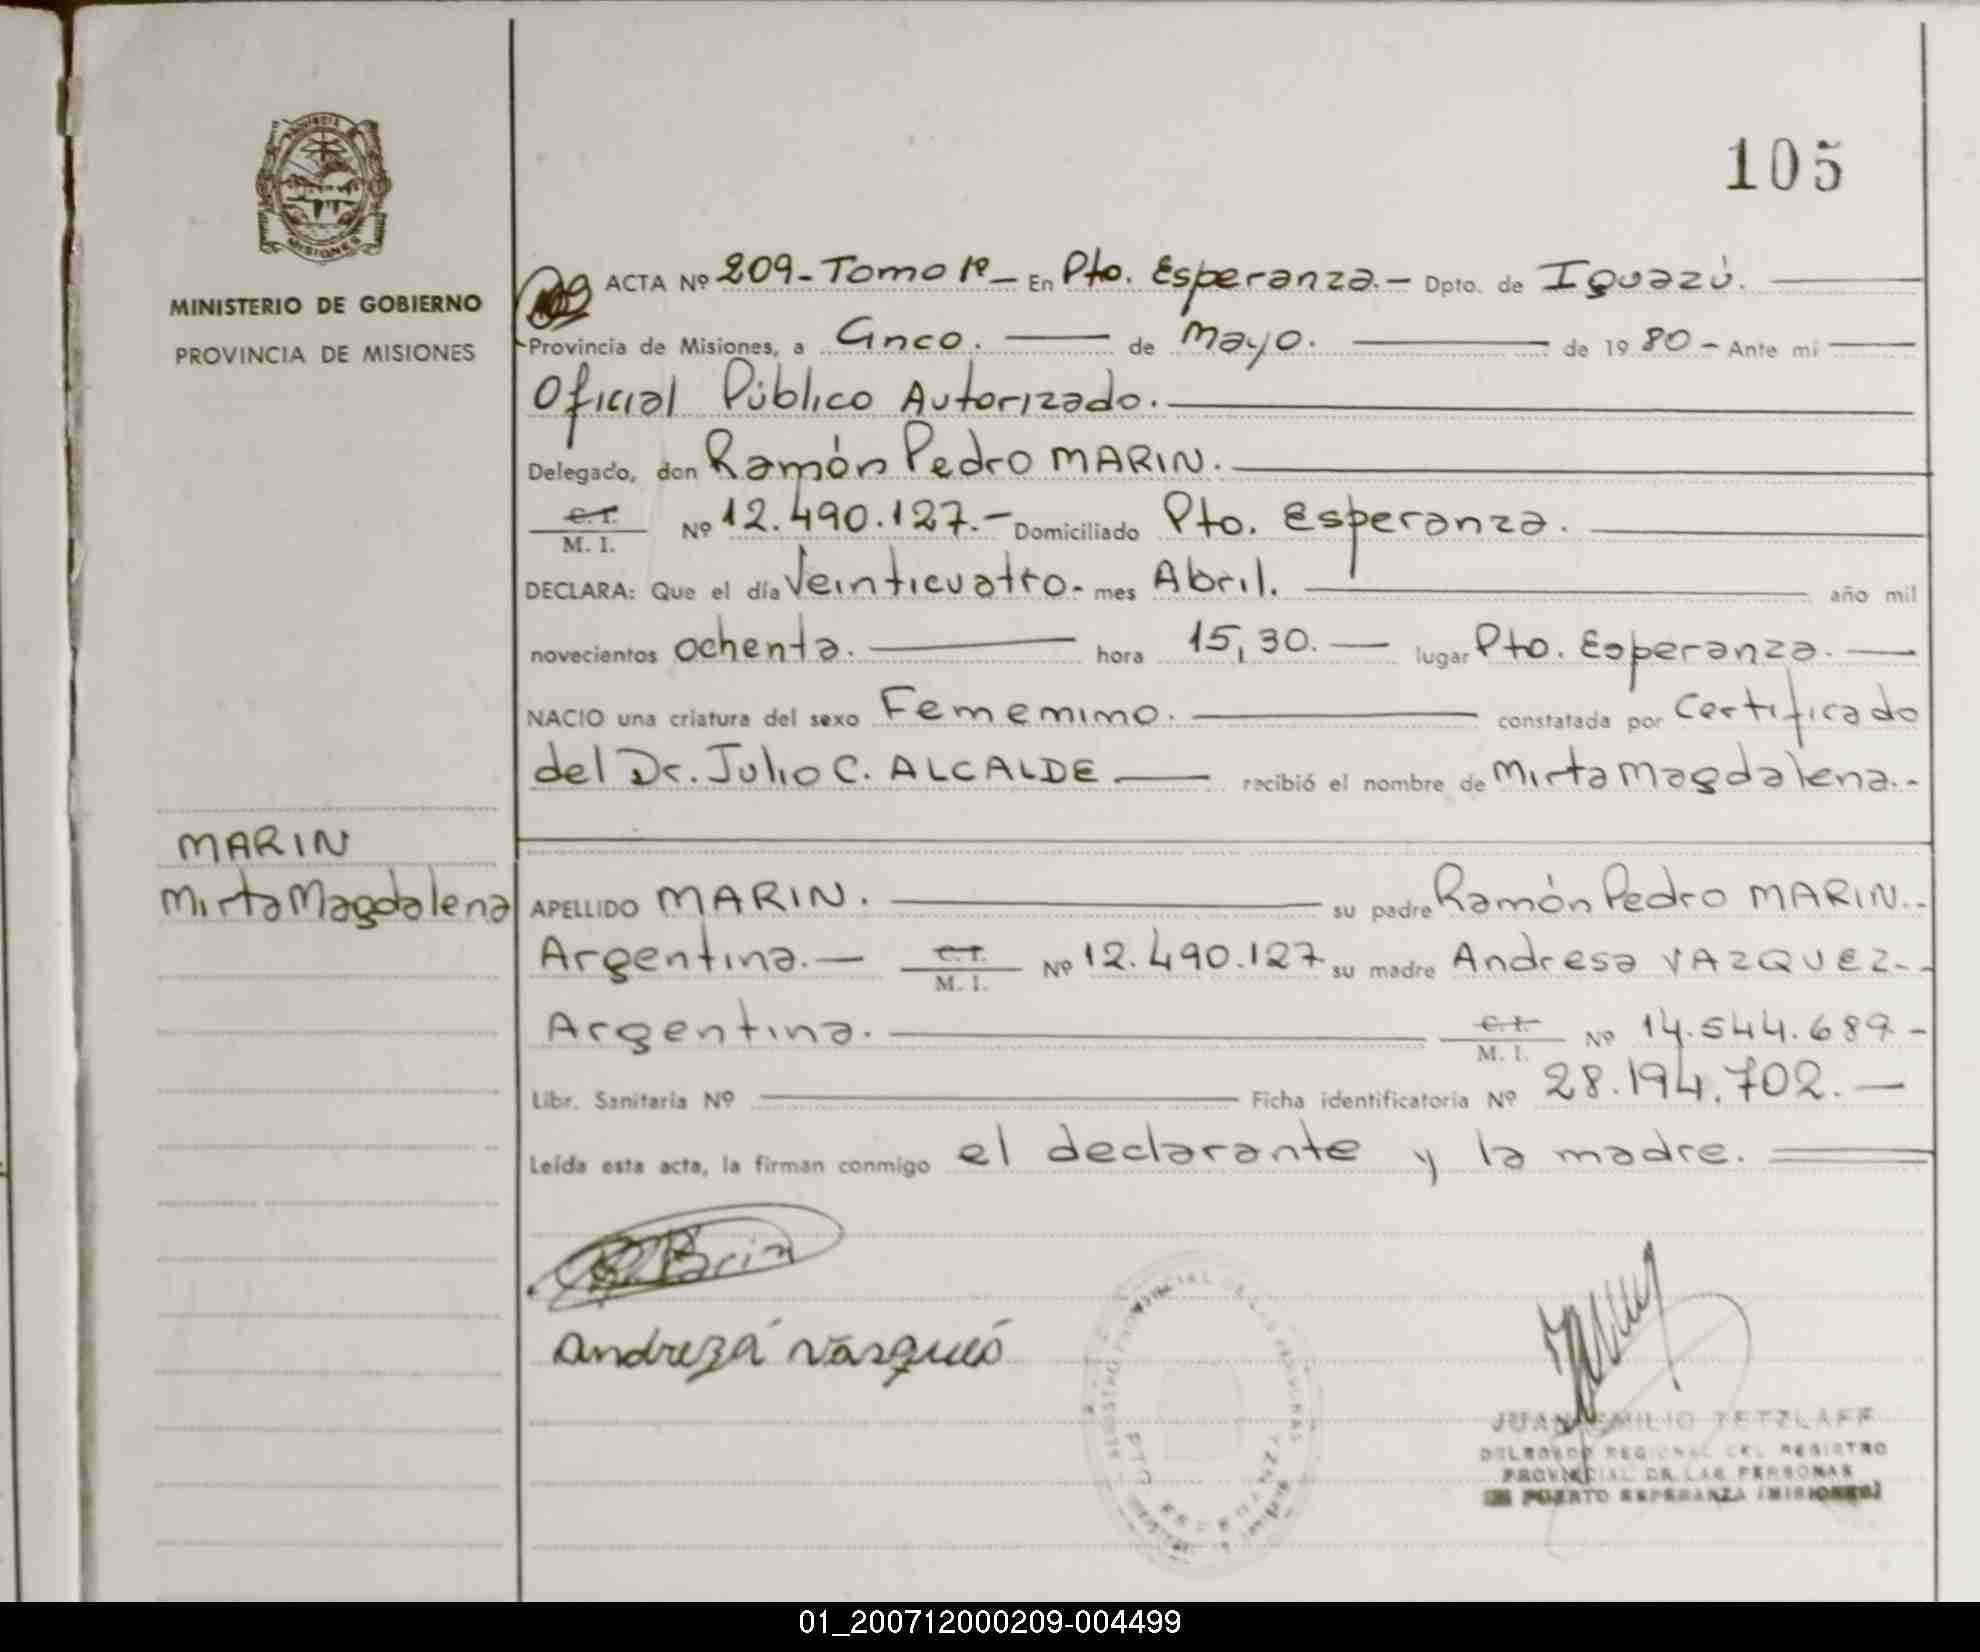 105
MINISTERIO DE GOBIERNO
PROVINCIA DE MISIONES
ACTA Nº 209-Tomo 1º- En Pto. Esperanza.- Dpto. de Iguazú.
Provincia de Misiones, a Cinco. de Mayo. de 1980- Ante mi
Oficial Público Autorizado.
Delegado, don Ramón Pedro MARIN.
C. I.
M. I. Nº 12.490.127.- Domiciliado Pto. Esperanza.
DECLARA: Que el día Veinticuatro- mes Abril. año mil
novecientos ochenta. hora 15,30.- lugar Pto. Esperanza.
NACIO una criatura del sexo Fememimo. constatada por Certificado
del Dr. Julio C. ALCALDE recibió el nombre de Mirta Magdalena.-
MARIN
Mirta Magdalena
APELLIDO MARIN. su padre Ramón Pedro MARIN.-
Argentina.- C. I. M. I. Nº 12.490.127 su madre Andresa VAZQUEZ.-
Argentina. C. I. M. I. Nº 14.544.689-
Libr. Sanitaria Nº Ficha identificatoria Nº 28.194.702.-
Leída esta acta, la firman conmigo el declarante y la madre.
andrezá vasqués
JUAN EMILIO TETZLAFF
DELEGADO REGIONAL DEL REGISTRO
PROVINCIAL DE LAS PERSONAS
PUERTO ESPERANZA (MISIONES)
01_200712000209-004499